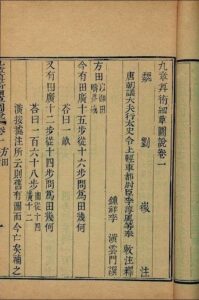 九章算術細草圖說卷一
魏 劉 徽 注
唐朝議大夫行太史令上輕車都尉臣李淳風等奉 敕注釋
鍾祥李 潢雲門譔
方田以御田疇界域
今有田廣十五步從十六步問爲田幾何
荅曰一畝
又有田廣十二步從十四步問爲田幾何
荅曰一百六十八步圖從十四廣十二
潢按注所云則舊有圖而今亡矣補之
卷一方田